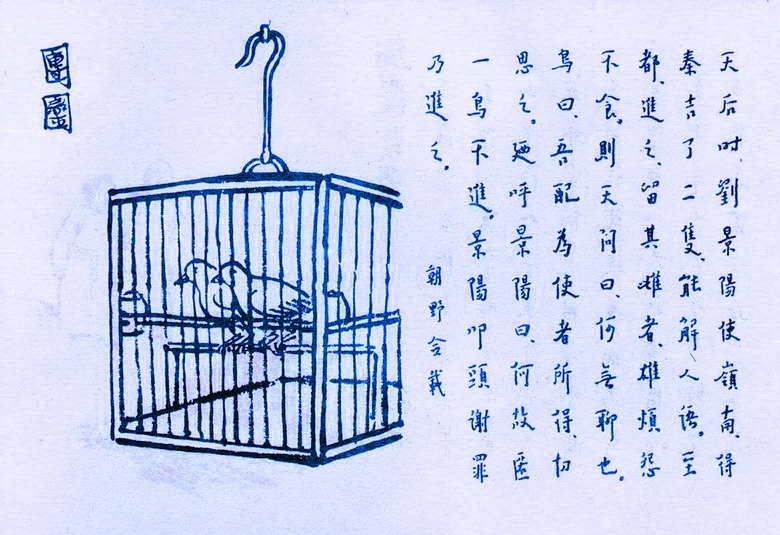 天后时、劉景陽使嶺南、得
秦吉了二隻、能解人语。至
都、進之、留其雌者、雄煩怨
不食。則天问曰、何無聊也。
鳥曰、吾配為使者所得、切
思之。廼呼景陽曰、何故匿
一鳥不進。景陽叩頭谢罪
乃進之。
朝野佥載
團圞